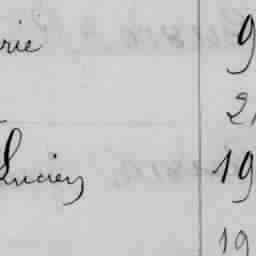 rie 9
2
Lucien 19
19